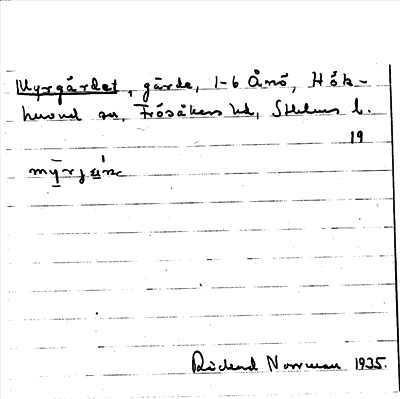 Myrgärdet, gärde, 1-6 Ånö, Hök-
huvud sn, Frösåkers hd, Sthlms l.
19
Rickard Norrman 1935.